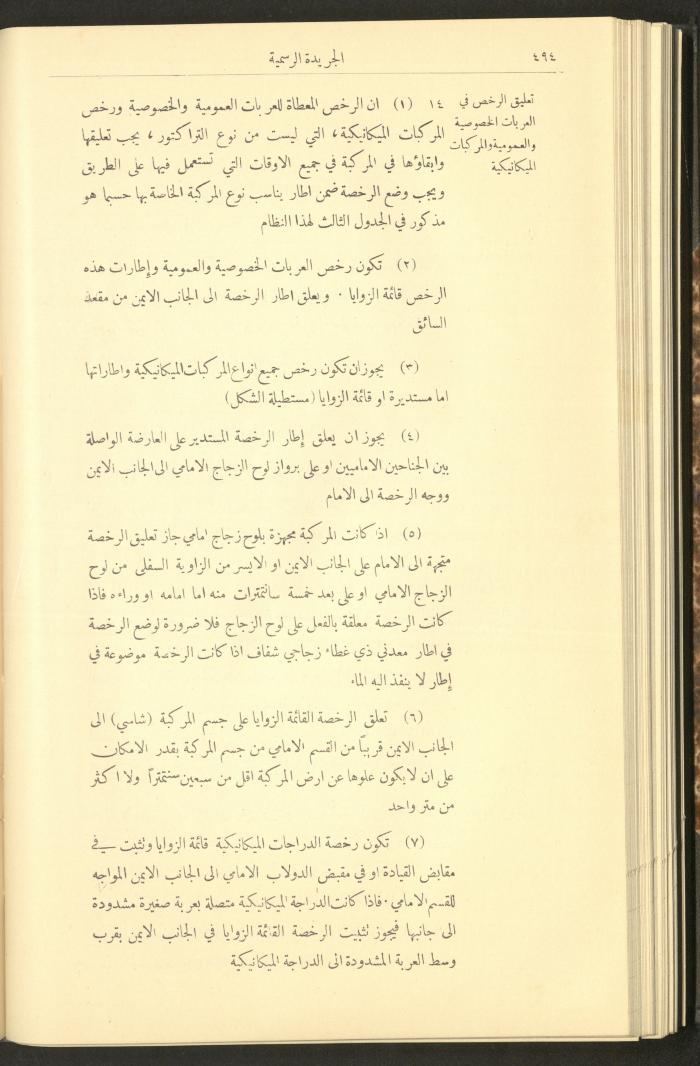 ٤٩٤
الجريدة الرسمية
تعليق الرخص في
العربات الخصوصية
والعمومية والمركبات
الميكانيكية
١٤ (١) ان الرخص المعطاة للعربات العمومية والخصوصية ورخص
المركبات الميكانيكية، التي ليست من نوع التراكتور، يجب تعليقها
وابقاؤها في المركبة في جميع الاوقات التي تستعمل فيها على الطريق
ويجب وضع الرخصة ضمن اطار يناسب نوع المركبة الخاصة بها حسبما هو
مذكور في الجدول الثالث لهذا النظام
(٢) تكون رخص العربات الخصوصية والعمومية وإطارات هذه
الرخص قائمة الزوايا . ويعلق اطار الرخصة الى الجانب الايمن من مقعد
السائق
(٣) يجوز ان تكون رخص جميع انواع المركبات الميكانيكية واطاراتها
اما مستديرة او قائمة الزوايا (مستطيلة الشكل)
(٤) يجوز ان يعلق إطار الرخصة المستدير على العارضة الواصلة
بين الجناحين الاماميين او على برواز لوح الزجاج الامامي الى الجانب الايمن
ووجه الرخصة الى الامام
(٥) اذا كانت المركبة مجهزة بلوح زجاج امامي جاز تعليق الرخصة
متجهة الى الامام على الجانب الايمن او الايسر من الزاوية السفلى من لوح
الزجاج الامامي او على بعد خمسة سانتمترات منه اما امامه او وراءه فاذا
كانت الرخصة معلقة بالفعل على لوح الزجاج فلا ضرورة لوضع الرخصة
في اطار معدني ذي غطاء زجاجي شفاف اذا كانت الرخصة موضوعة في
إطار لا ينفذ اليه الماء
(٦) تعلق الرخصة القائمة الزوايا على جسم المركبة (شاسي) الى
الجانب الايمن قريبًا من القسم الامامي من جسم المركبة بقدر الامكان
على ان لا يكون علوها عن ارض المركبة اقل من سبعين سنتمترًا ولا اكثر
من متر واحد
(٧) تكون رخصة الدراجات الميكانيكية قائمة الزوايا وتثبت في
مقابض القيادة او في مقبض الدولاب الامامي الى الجانب الايمن المواجه
للقسم الامامي . فاذا كانت الدراجة الميكانيكية متصلة بعربة صغيرة مشدودة
الى جانبها فيجوز تثبيت الرخصة القائمة الزوايا في الجانب الايمن بقرب
وسط العربة المشدودة الى الدراجة الميكانيكية